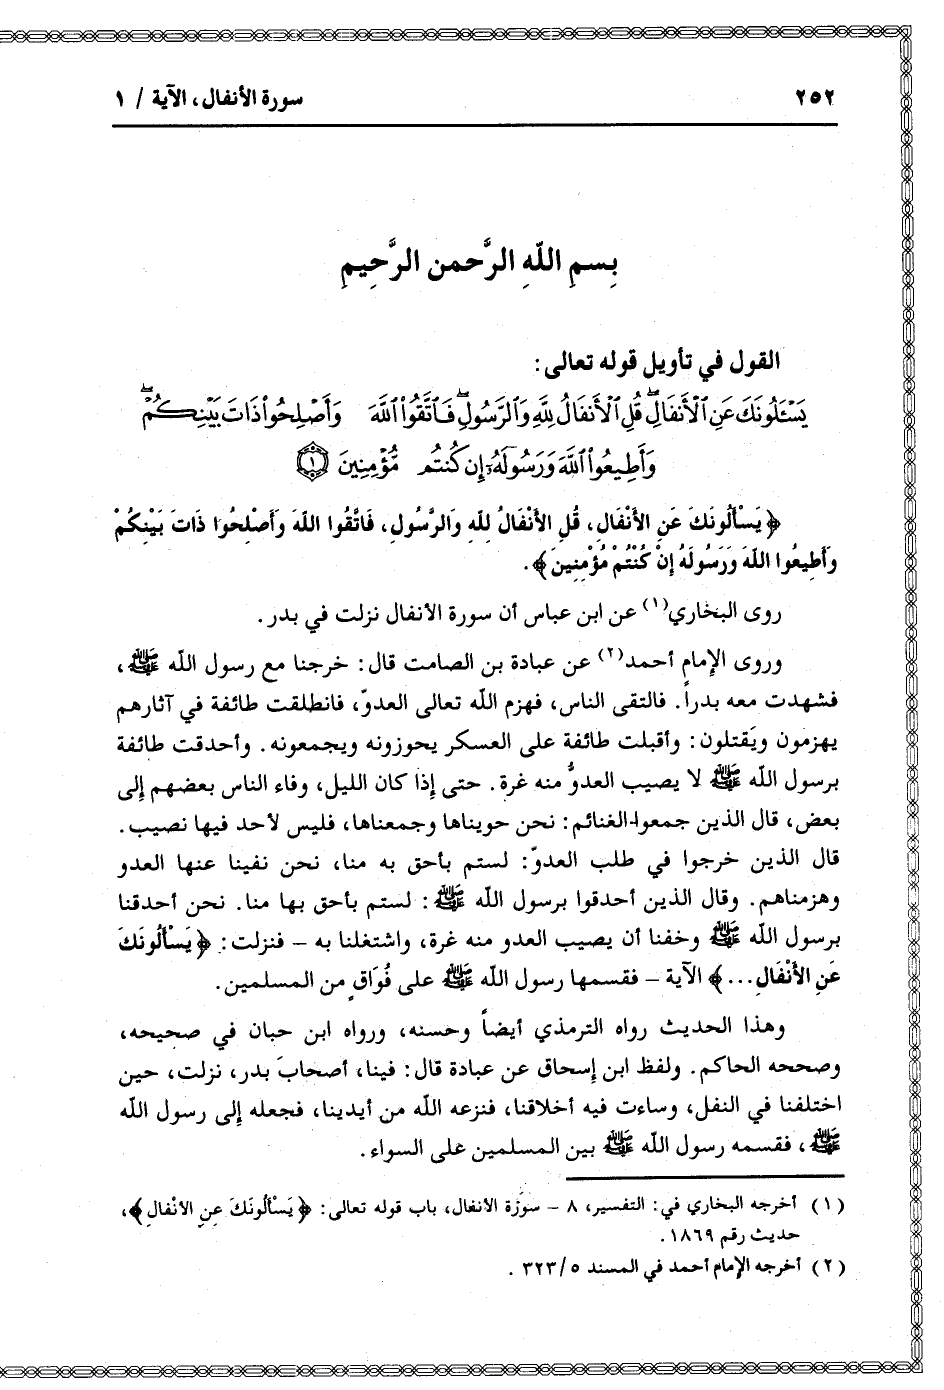 ٢٥٢
سورة الأنفال، الآية / ١
بِسمِ اللّهِ الرَّحمن الرَّحِيمِ
القول في تأويل قوله تعالى:
يَسْـَٔلُونَكَ عَنِ ٱلْأَنفَالِۖ قُلِ ٱلْأَنفَالُ لِلَّهِ وَٱلرَّسُولِۖ فَٱتَّقُوا۟ ٱللَّهَ وَأَصْلِحُوا۟ ذَاتَ بَيْنِكُمْۖ
وَأَطِيعُوا۟ ٱللَّهَ وَرَسُولَهُۥٓ إِن كُنتُم مُّؤْمِنِينَ ١
﴿يَسْأَلُونَكَ عَنِ الأَنْفَالِ، قُلِ الأَنْفَالُ لِلّهِ وَالرَّسُولِ، فَاتَّقُوا اللهَ وَأَصْلِحُوا ذَاتَ بَيْنِكُمْ
وَأَطِيعُوا اللهَ وَرَسُولَهُ إِنْ كُنْتُمْ مُؤْمِنِينَ﴾.
روى البخاري(١) عن ابن عباس أن سورة الأنفال نزلت في بدر.
وروى الإمام أحمد(٢) عن عبادة بن الصامت قال: خرجنا مع رسول الله ﷺ،
فشهدت معه بدراً. فالتقى الناس، فهزم الله تعالى العدوّ، فانطلقت طائفة في آثارهم
يهزمون ويَقتلون: وأقبلت طائفة على العسكر يحوزونه ويجمعونه. وأحدقت طائفة
برسول الله ﷺ لا يصيب العدوُّ منه غرة. حتى إذا كان الليل، وفاء الناس بعضهم إلى
بعض، قال الذين جمعوا الغنائم: نحن حويناها وجمعناها، فليس لأحد فيها نصيب.
قال الذين خرجوا في طلب العدوّ: لستم بأحق به منا، نحن نفينا عنها العدو
وهزمناهم. وقال الذين أحدقوا برسول الله ﷺ: لستم بأحق بها منا. نحن أحدقنا
برسول الله ﷺ وخفنا أن يصيب العدو منه غرة، واشتغلنا به – فنزلت: ﴿يَسْأَلُونَكَ
عَنِ الأَنْفَالِ...﴾ الآية – فقسمها رسول الله ﷺ على فُوَاق من المسلمين.
وهذا الحديث رواه الترمذي أيضاً وحسنه، ورواه ابن حبان في صحيحه،
وصححه الحاكم. ولفظ ابن إسحاق عن عبادة قال: فينا، أصحابَ بدر، نزلت، حين
اختلفنا في النفل، وساءت فيه أخلاقنا، فنزعه الله من أيدينا، فجعله إلى رسول الله
ﷺ، فقسمه رسول الله ﷺ بين المسلمين على السواء.
(١) أخرجه البخاري في: التفسير، ٨ – سورة الأنفال، باب قوله تعالى: ﴿يَسْأَلُونَكَ عَنِ الأَنْفالِ﴾،
حديث رقم ١٨٦٩.
(٢) أخرجه الإمام أحمد في المسند ٣٢٣/٥.